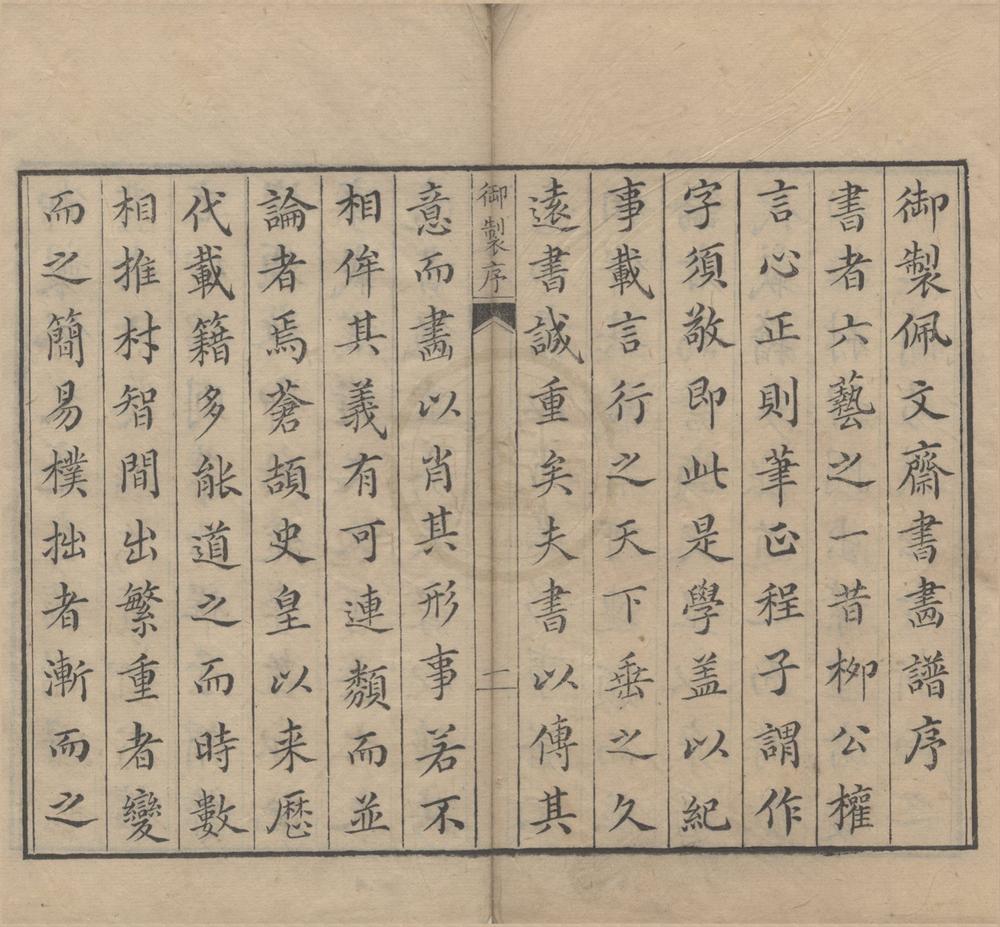 御製佩文齋書畵譜序
書者六藝之一昔栁公權
言心正則筆正程子謂作
字須敬即此是學盖以紀
事載言行之天下垂之久
遠書誠重矣夫書以傳其
御製序
二
意而畵以肖其形事若不
相侔其義有可連類而並
論者焉蒼頡史皇以来歴
代載籍多能道之而時數
相推材智間出繁重者變
而之簡易樸拙者漸而之